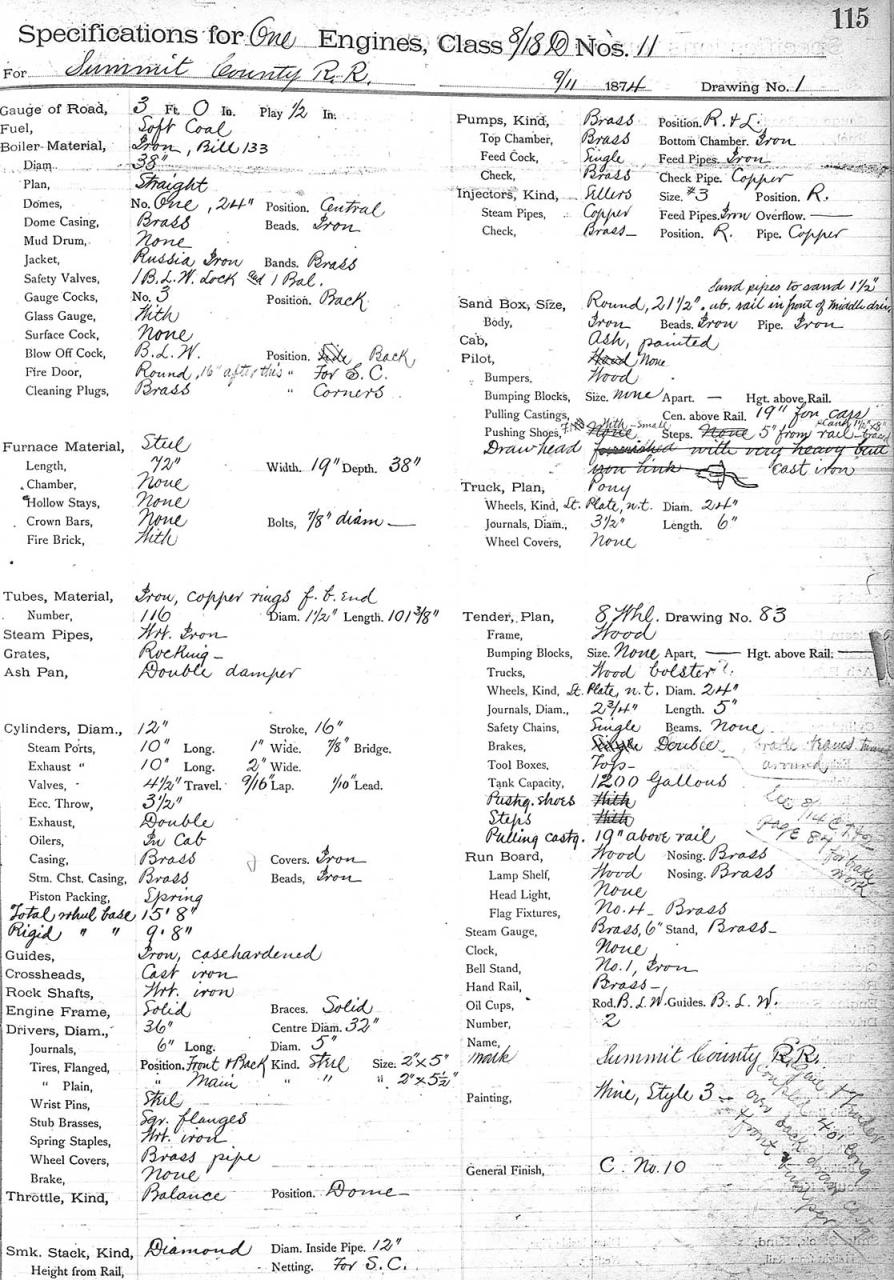 115
Specifications for One Engines, Class 8/18 D Nos. 11
For Summit County R.R. 9/11 1874 Drawing No. 1
Gauge of Road, 3 Ft. 0 In. Play 1/2 In.
Fuel, Soft Coal
Boiler Material, Iron, Bill 133
Diam. 38"
Plan, Straight
Domes, No. One, 24" Position. Central
Dome Casing, Brass Beads. Iron
Mud Drum, None
Jacket, Russia Iron Bands. Brass
Safety Valves, 1 B.L.W. Lock and 1 Bal.
Gauge Cocks, No. 3 Position. Back
Glass Gauge, With
Surface Cock, None
Blow Off Cock, B.L.W. Position. Side Back
Fire Door, Round, 16" after this " For S.C.
Cleaning Plugs, Brass " Corners
Furnace Material, Steel
Length, 72" Width. 19" Depth. 38"
Chamber, None
Hollow Stays, None
Crown Bars, None Bolts, 7/8" diam
Fire Brick, With
Tubes, Material, Iron, copper rings f.b. end
Number, 116 Diam. 1 1/2" Length. 101 3/8"
Steam Pipes, Wrt. Iron
Grates, Rocking
Ash Pan, Double damper
Cylinders, Diam., 12" Stroke, 16"
Steam Ports, 10" Long. 1" Wide. 7/8" Bridge.
Exhaust " 10" Long. 2" Wide.
Valves, 4 1/2" Travel. 9/16" Lap. 1/10" Lead.
Ecc. Throw, 3 1/2"
Exhaust, Double
Oilers, In Cab
Casing, Brass Covers. Iron
Stm. Chst. Casing, Brass Beads, Iron
Piston Packing, Spring
Total wheel base 15' 8"
Rigid " " 9' 8"
Guides, Iron, casehardened
Crossheads, Cast iron
Rock Shafts, Wrt. iron
Engine Frame, Solid Braces. Solid
Drivers, Diam., 36" Centre Diam. 32"
Journals, 6" Long. Diam. 5"
Tires, Flanged, Position. Front & Back Kind. Steel Size. 2" x 5"
" Plain, " Main " " " 2" x 5 1/2"
Wrist Pins, Steel
Stub Brasses, Sqr. flanges
Spring Staples, Wrt. iron
Wheel Covers, Brass pipe
Brake, None
Throttle, Kind, Balance Position. Dome
Smk. Stack, Kind, Diamond Diam. Inside Pipe. 12"
Height from Rail, Netting. For S.C.
Pumps, Kind, Brass Position. R. & L.
Top Chamber, Brass Bottom Chamber. Iron
Feed Cock, Single Feed Pipes. Iron
Check, Brass Check Pipe. Copper
Injectors, Kind, Sellers Size. #3 Position. R.
Steam Pipes, Copper Feed Pipes. Iron Overflow. —
Check, Brass Position. R. Pipe. Copper
Sand pipes to sand 1 1/2"
Sand Box, Size, Round, 21 1/2". ab. rail in front of middle driv
Body, Iron Beads. Iron Pipe. Iron
Cab, Ash, painted
Pilot, Wood None
Bumpers, Wood
Bumping Blocks, Size. none Apart. — Hgt. above Rail.
Pulling Castings, Cen. above Rail. 19" for cars
Pushing Shoes, None With - small Steps. None 5" from rail
Drawhead furnished with very heavy
iron link cast iron
Truck, Plan, Pony
Wheels, Kind, St. Plate, n.t. Diam. 24"
Journals, Diam., 3 1/2" Length. 6"
Wheel Covers, None
Tender, Plan, 8 Whl. Drawing No. 83
Frame, Wood
Bumping Blocks, Size. None Apart, — Hgt. above Rail: —
Trucks, Wood bolster
Wheels, Kind, St. Plate, n.t. Diam. 24"
Journals, Diam., 2 3/4" Length. 5"
Safety Chains, Single Beams. None
Brakes, Single Double
Tool Boxes, Tops around
Tank Capacity, 1200 Gallons
Pushg. shoes With
Steps With
Pulling castg. 19" above rail
See 8/14
Page 84
for brake
work
Run Board, Wood Nosing. Brass
Lamp Shelf, Wood Nosing. Brass
Head Light, None
Flag Fixtures, No. 4 Brass
Steam Gauge, Brass, 6" Stand, Brass
Clock, None
Bell Stand, No. 1, Iron
Hand Rail, Brass
Oil Cups, Rod. B.L.W. Guides. B.L.W.
Number, 2
Name,
mark Summit County R.R.
Painting, Wine, Style 3
General Finish, C. No. 10